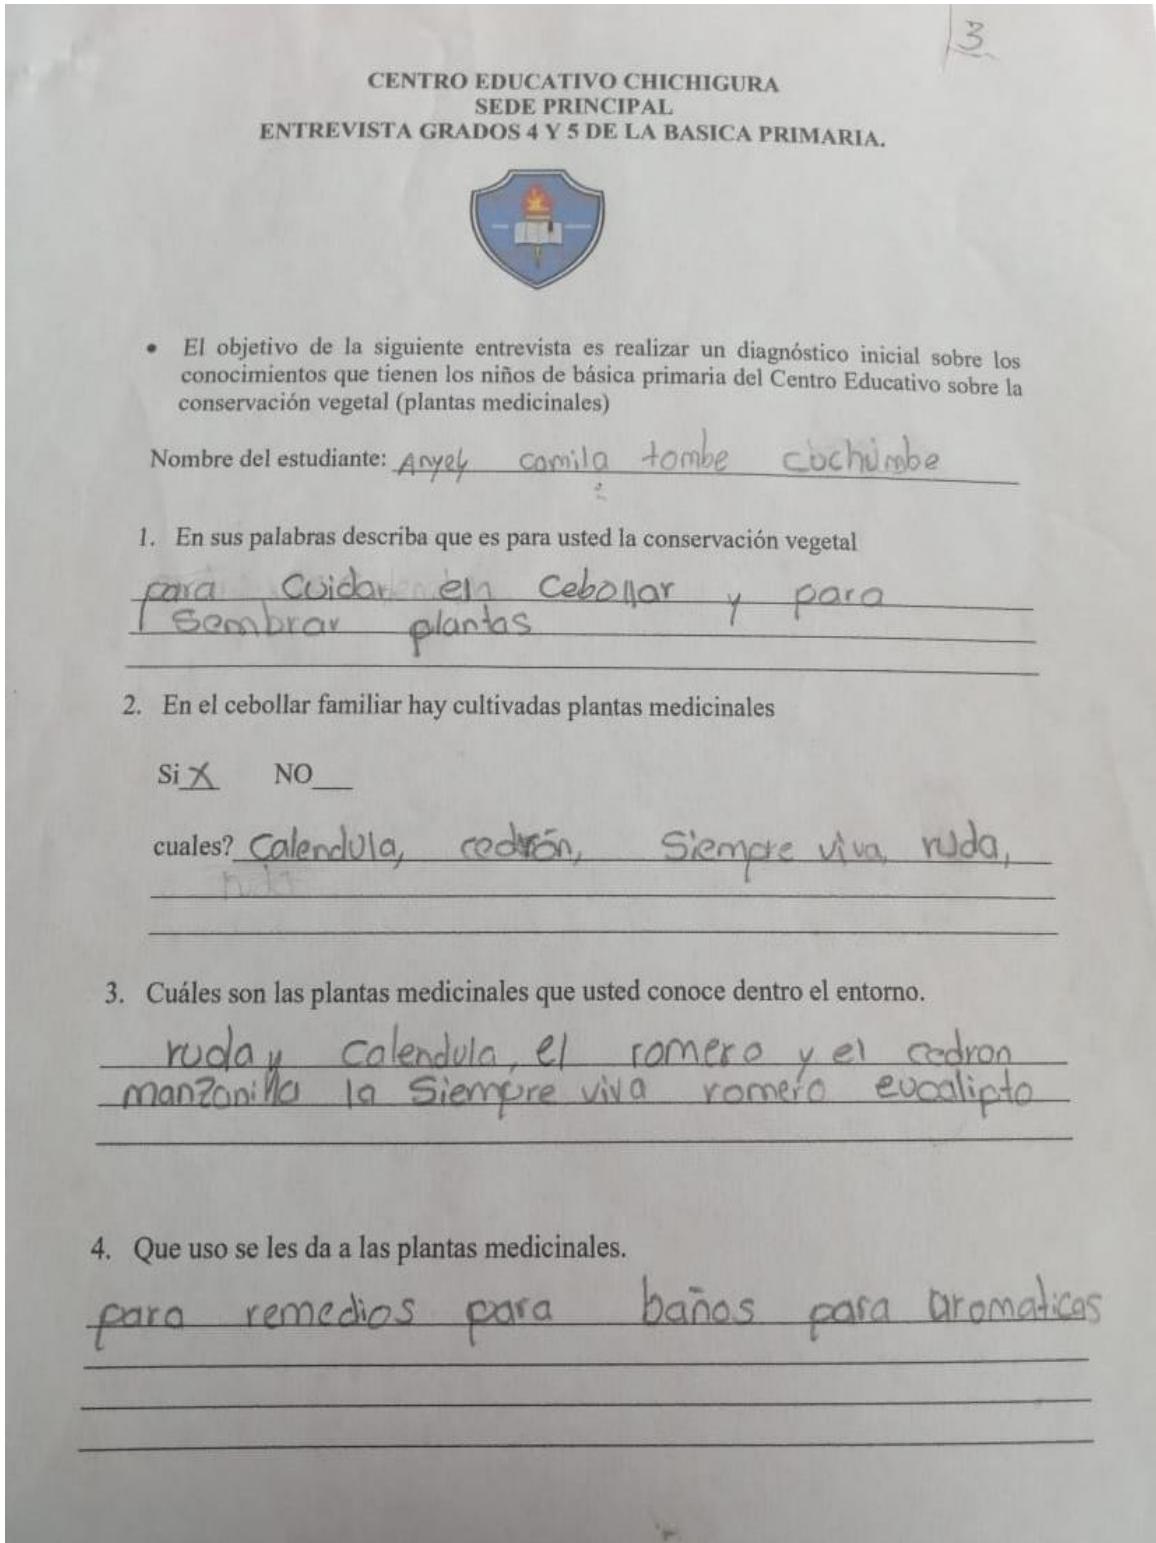 3
CENTRO EDUCATIVO CHICHIGURA
SEDE PRINCIPAL
ENTREVISTA GRADOS 4 Y 5 DE LA BASICA PRIMARIA.
• El objetivo de la siguiente entrevista es realizar un diagnóstico inicial sobre los
conocimientos que tienen los niños de básica primaria del Centro Educativo sobre la
conservación vegetal (plantas medicinales)
Nombre del estudiante: Anyely camila tombe cuchumbe
1. En sus palabras describa que es para usted la conservación vegetal
para cuidar eln cebollar y para
sembrar plantas
2. En el cebollar familiar hay cultivadas plantas medicinales
Si X NO
cuales? Calendula, cedrón, Siempre viva, ruda,
3. Cuáles son las plantas medicinales que usted conoce dentro el entorno.
ruda y Calendula, el romero y el cedron
manzanilla la Siempre viva romero eucalipto
4. Que uso se les da a las plantas medicinales.
para remedios para baños para aromaticas